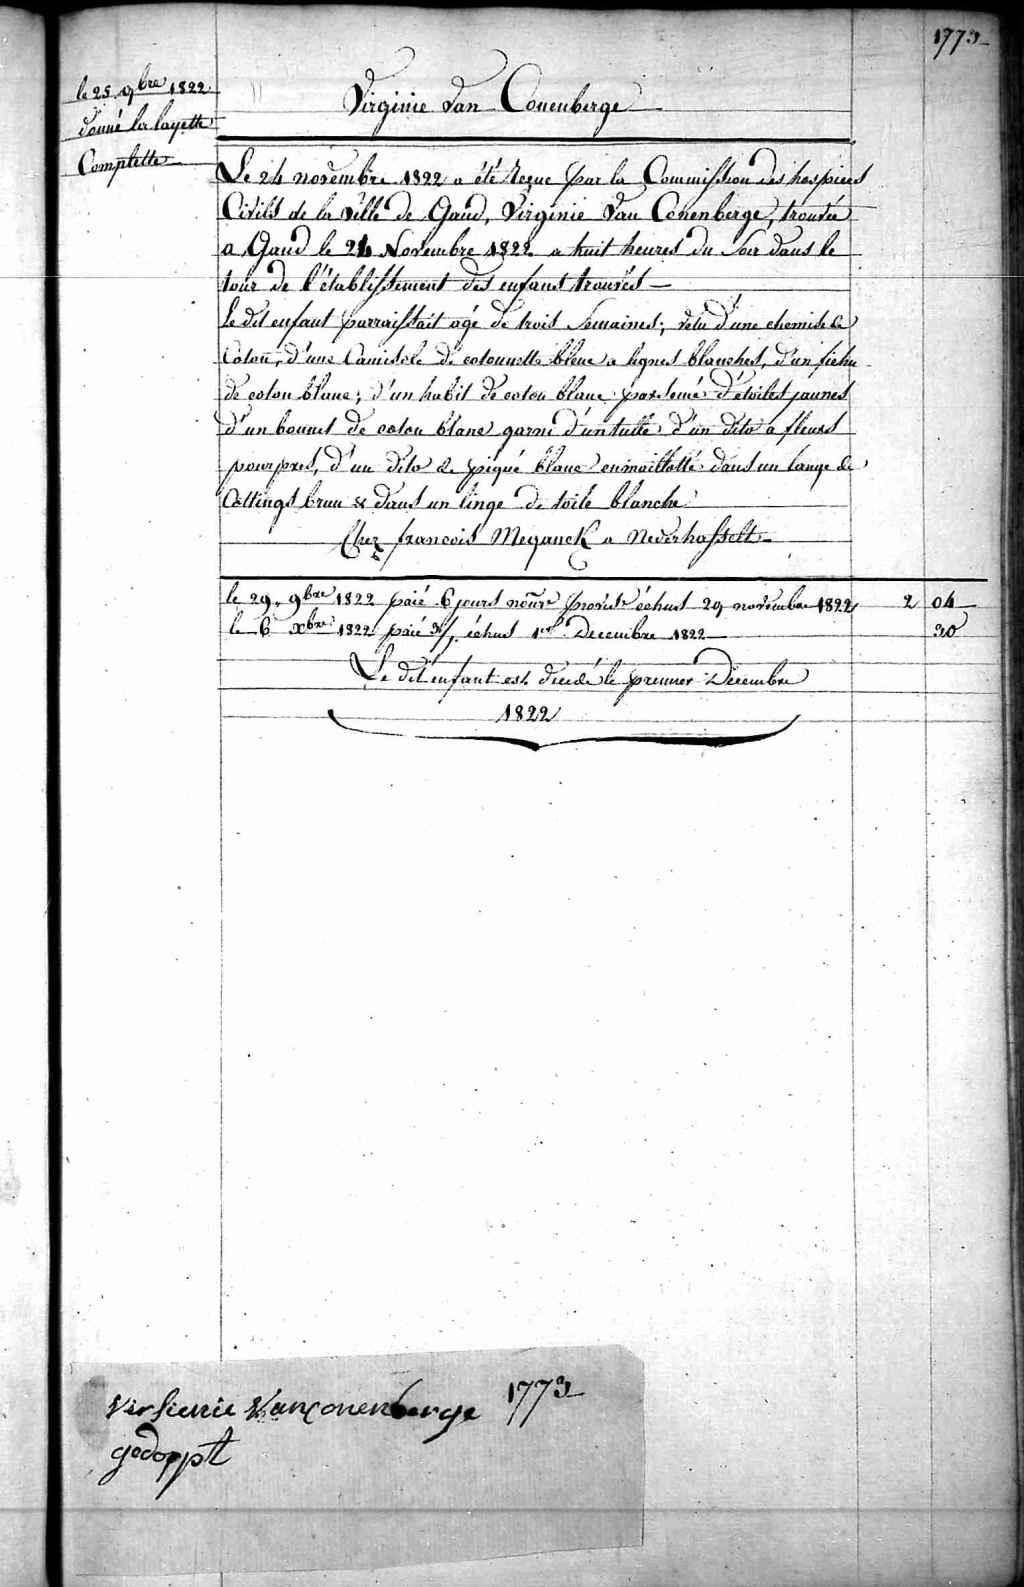 1773
le 25 9bre 1822
donné la layette
Complette
Virginie Van Conenberge
Le 24 novembre 1822 a été Reçue par la Commission des hospices
Civils de la Ville de Gand, Virginie Van Conenberge, trouvée
a Gand le 24 Novembre 1822 a huit heures du Soir dans le
tour de l'établissement des enfans trouvés
Le dit enfant parraissait agé de trois Semaines; vetu d'une chemise de
Coton, d'une Camisole de cotonnette bleue a lignes blanches, d'un fichu
de coton blanc; d'un habit de coton blanc parsemé d'étoiles jaunes
d'un bonnet de coton blanc garni d'un tulle d'un dito a fleurs
pourpres, d'un dito de piqué blanc enmaillotté dans un lange de
Cattings brun & dans un linge de toile blanche
Chez francois Meganck a Nederhasselt
le 29. 9bre 1822 paié 6 jours échus 29 novembre 1822 2 04
le 6 Xbre 1822 paié échus 1er Decembre 1822 30
Le dit enfant est décédé le premier Decembre
1822
Virsienie Vanconenberge 1773
gedoppt